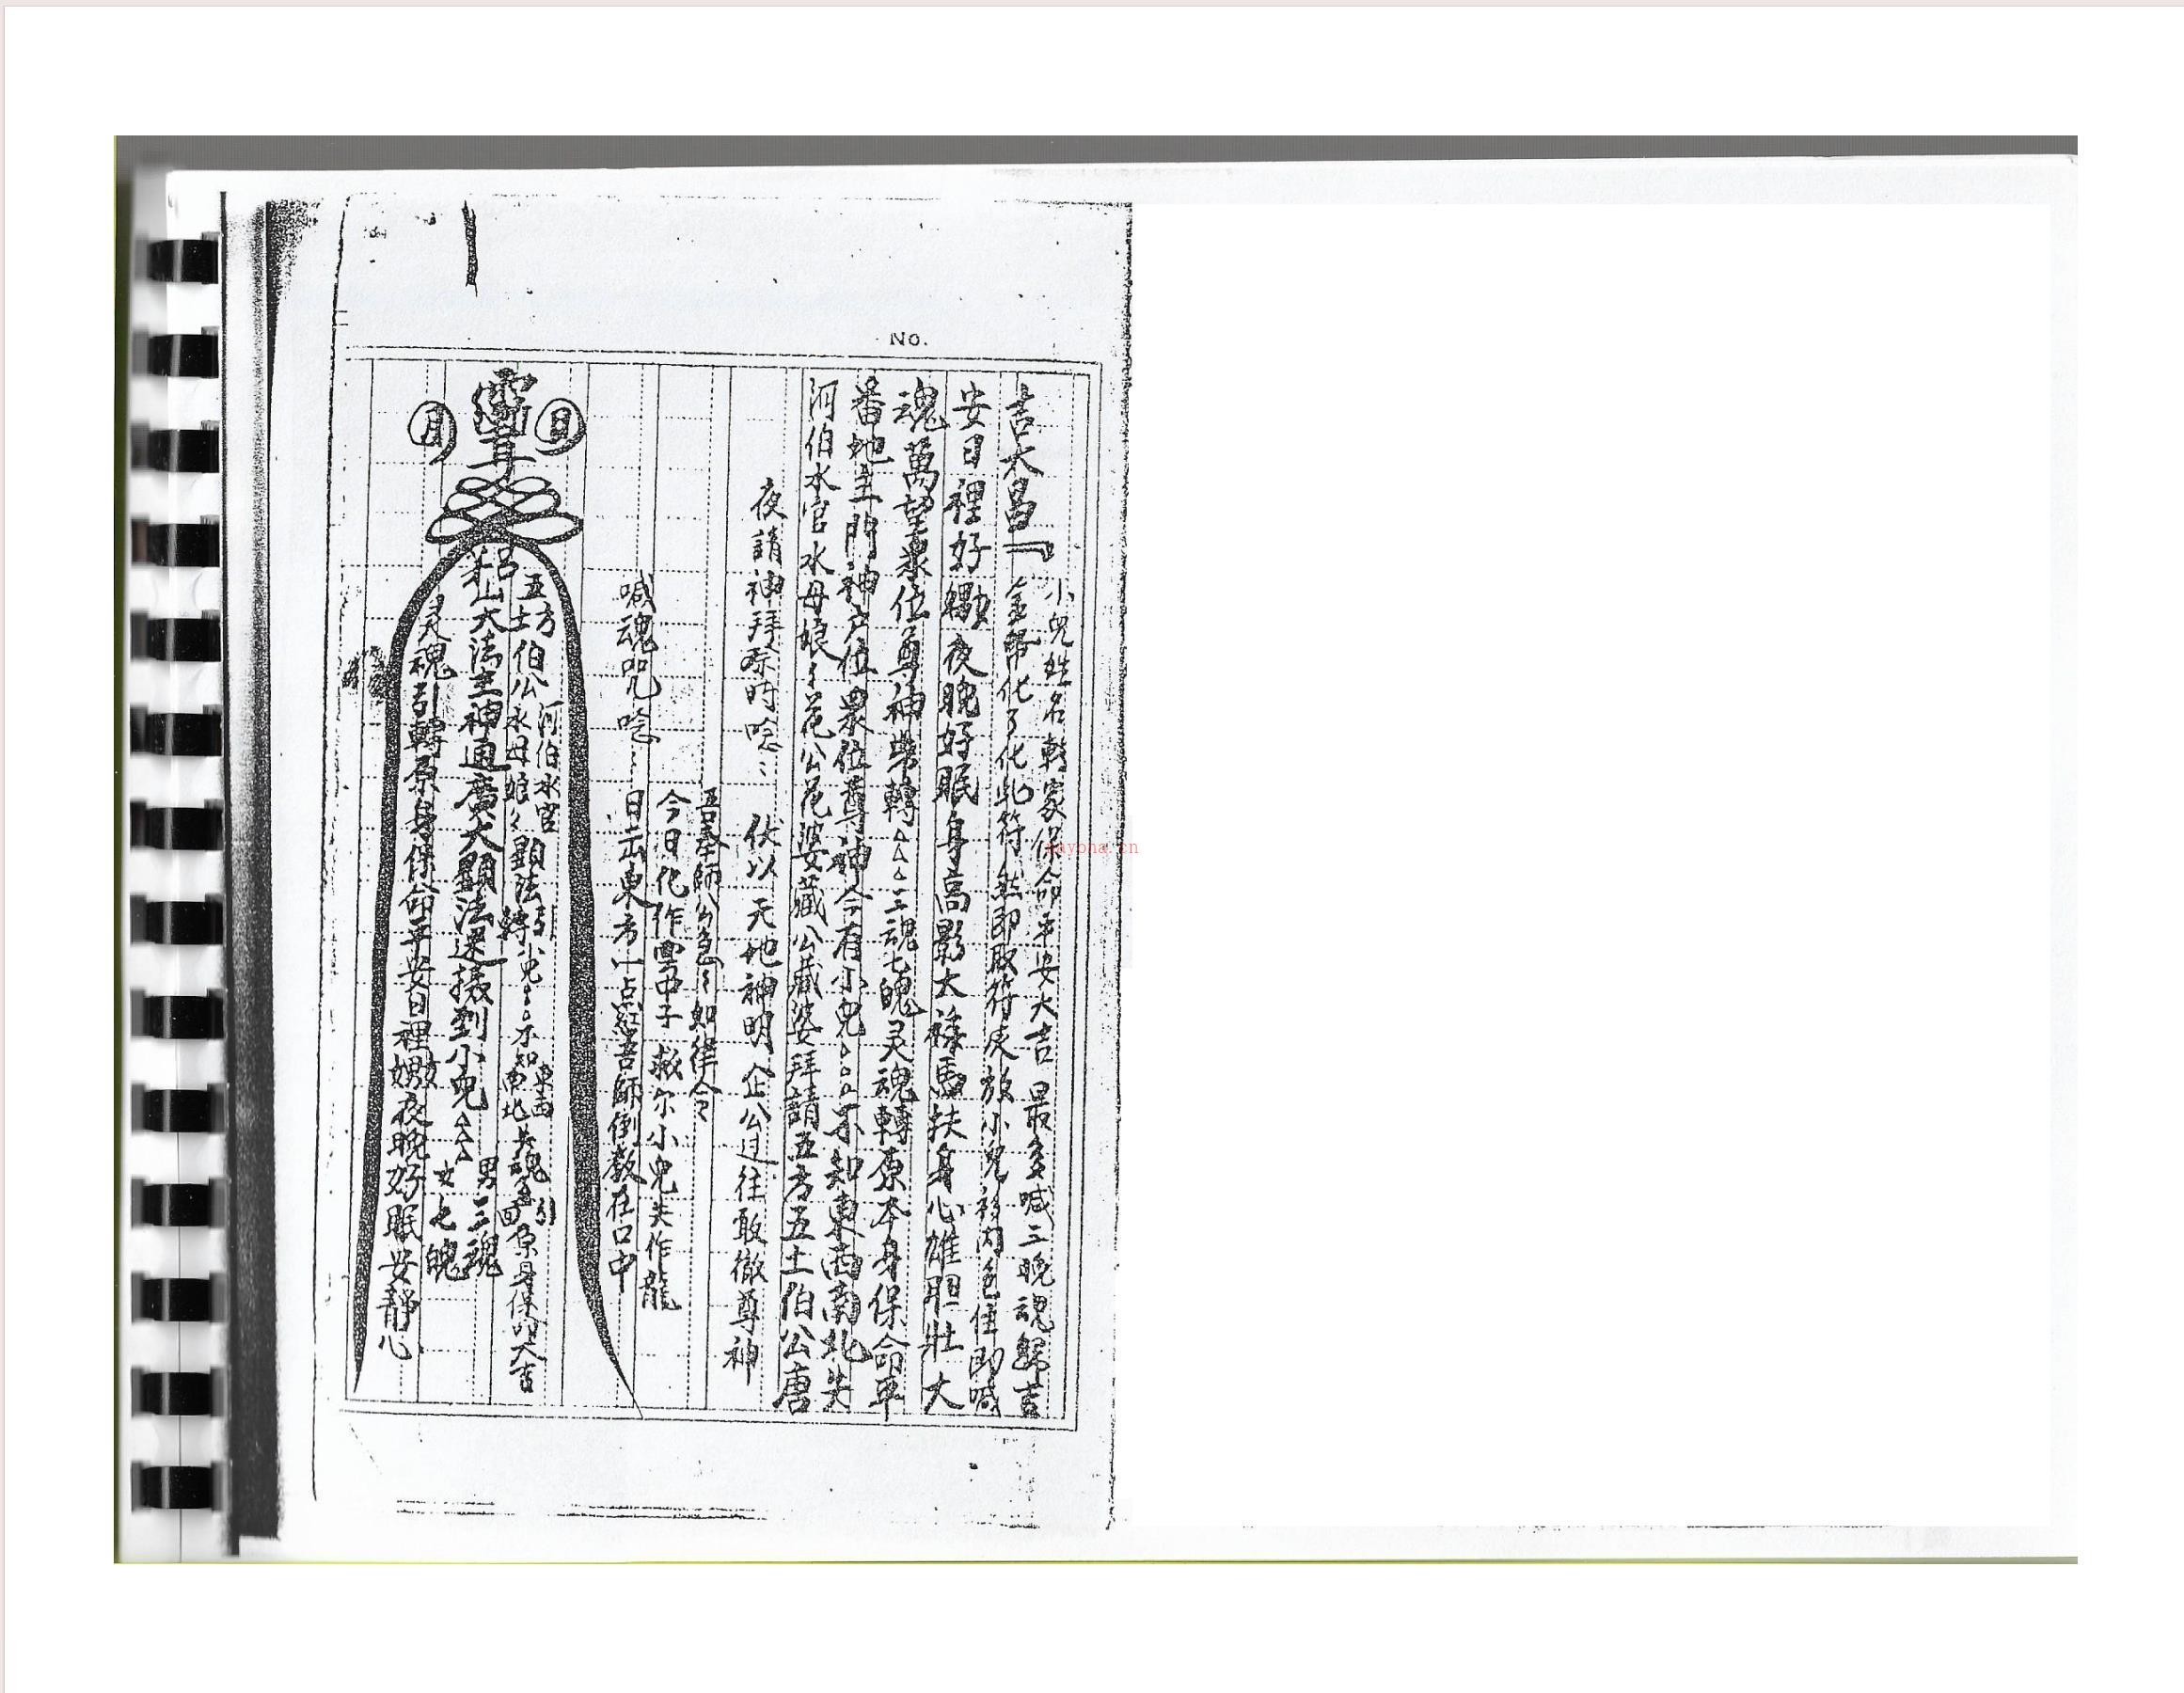 月
靈
日
灵魂引轉原身保命平安日裡好嬲夜晚好眠安靜心
山大法主神通廣大顯法還攝到小兒△△△
女七魄
男三魂
五方
五土伯公水母娘々
河伯水官
顯法引轉小兒
不知東西南北失魂
引回原身保命大吉
喊魂咒唸：
日出東方一点紅吾師倒教在口中
今日化作雪中子 救尔小兒失作龍
吾奉師公急々如律令
夜請神拜祭時唸：
伏以 天地神明 企公过往敢徹尊神
河伯水官水母娘々花公花婆藏公藏婆拜請五方五土伯公唐
番地主門神户位眾位尊神今有小兒不知東西南北失
魂萬望眾位尊神帶轉△△△三魂七魄灵魂轉原本身保命平
安日裡好嬲夜晚好眠身高影大祿馬扶身心雄胆壯大
吉大昌『
金帛化了化此符然即取符灰放小兒衫內包住即喊
小兒姓名轉家保命平安大吉 最多喊三晚魂歸吉
No.